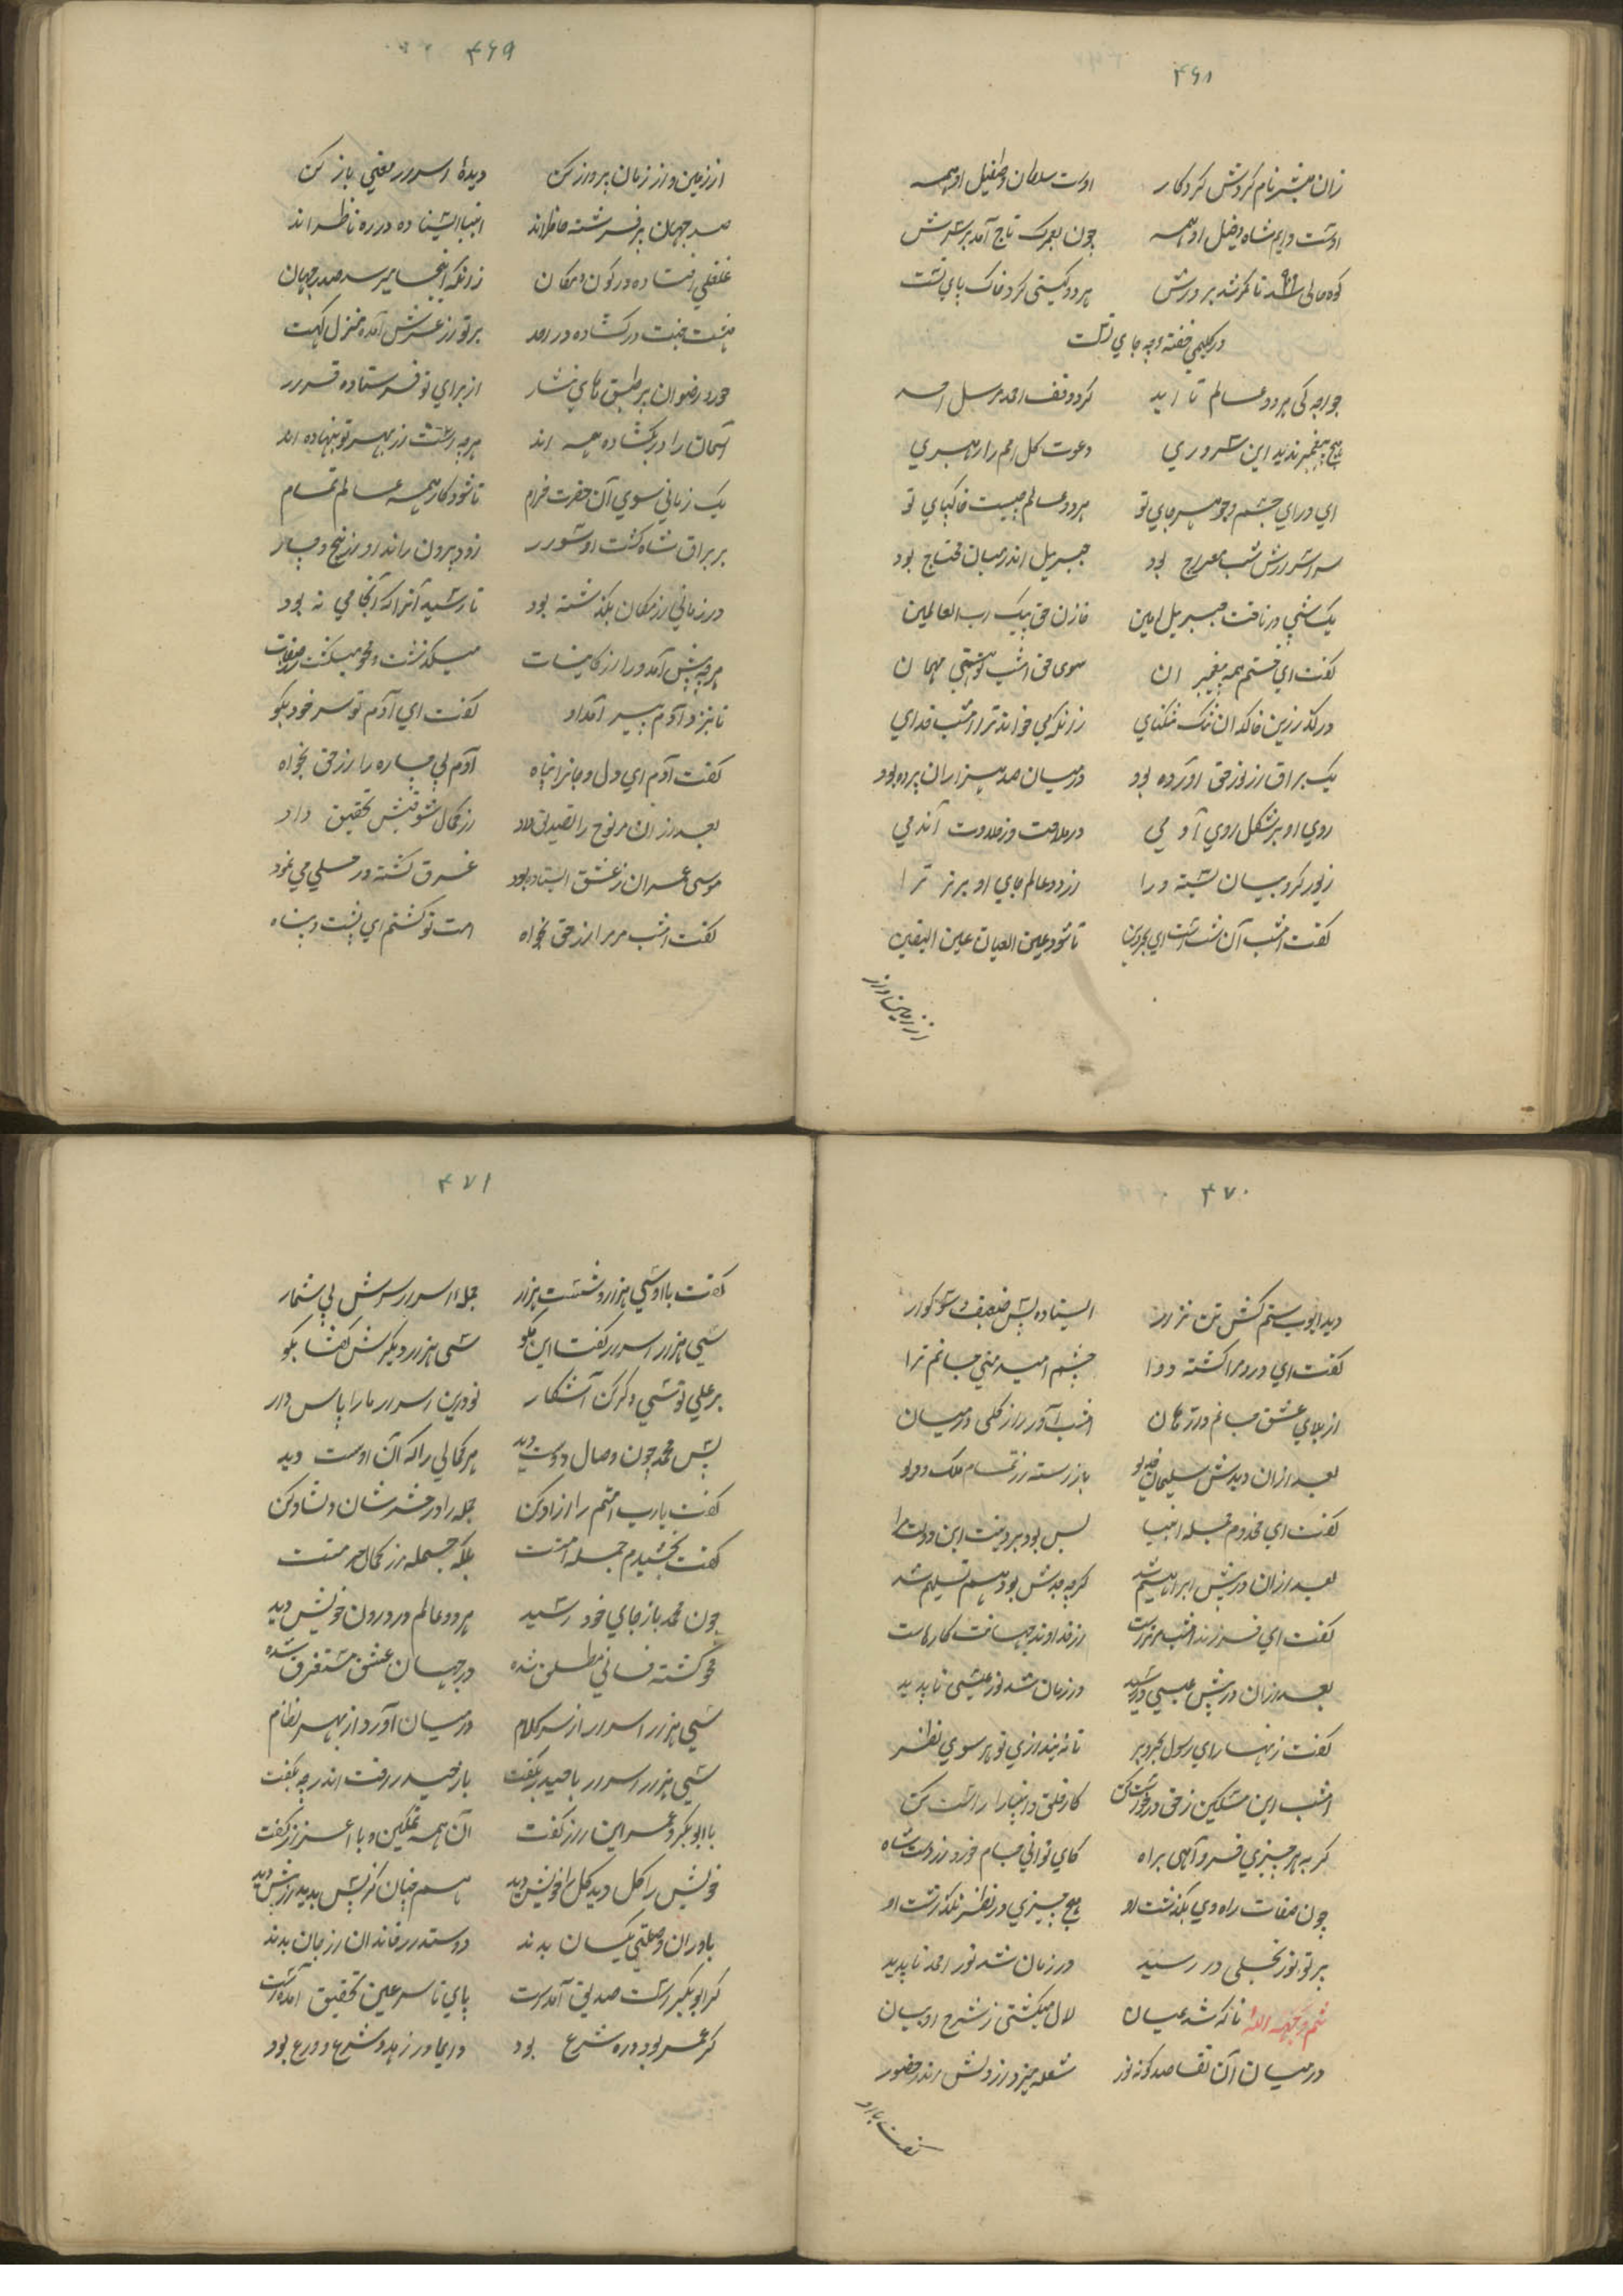 ۴۶۸
زان مبشر نام کردش کردکار اوست سلطان و طفیل او همه
اوست دایم شاه و خیل او همه چون لعمرک تاج آمد بر سرش
کوه حالی شد تا کمر شد بر درش هر دو گیتی کرد خاک پای تست
در گلیمی خفته وچه جای تست
خواجه کی هر دو عالم تا ابد کرد وقف احمد مرسل احد
هیچ پیغمبر ندید این سروری دعوت کل امم را رهبری
ای ورای جسم و جوهر جای تو هر دو عالم چیست خاکپای تو
سر اسرارش شب معراج بود جبریل اندر میان محتاج بود
یک شبی در تاخت جبریل امین خازن حق پیک رب العالمین
گفت ای ختم همه پیغمبران سوی حق امشب تو هستی مهمان
در گذر زین خاکدان تنگنای زانکه می خواند ترا امشب خدای
یک براق از نور حق آورده بود در میان صد هزاران پرده بود
روی او بر شکل روی آدمی در ملاحت وز حلاوت آن دمی
زیور کروبیان بسته ورا از دو عالم جای او برتر ترا
گفت امشب آن شبست ای بحر دین تا شود عین العیان عین الیقین
از زمین و از
۴۶۹
از زمین و از زمان پرواز کن دیدهٔ اسرار معنی باز کن
صد جهان پر فرشته حاظراند انبیا استاده در ره ناظراند
غلغلی افتاده در کون و مکان زانکه اینجا میرسد صدر جهان
هشت جنت در گشاده در آمد پرتو از عرش آمده منزل گهت
حور و رضوان بر طبق های نثار از برای تو فرستاده قرار
آسمان را در بگشاده همه اند هرچه هست از بهر تو بنهاده اند
یک زمانی سوی آن حضرت خرام تا شود کار همه عالم تمام
بر براق شاه گشت او سوار زود بیرون راند او از پنج و چهار
در زمانی از مکان بگذشته بود تا رسید آنرا که آنجا می نه بود
هرچه پیش آمد ورا از کاینات میگذشت و محو میگشت از صفات
تا بنزد آدم پیر آمد او گفت ای آدم تو سر خود بگو
گفت آدم ای دل و جانرا پناه آدم بی چاره را از حق بخواه
بعد از آن مر نوح را تصدیق داد از کمال شوقش تحقیق داد
موسی عمران ز عشق استاده بود غرق گشته در تسلی می نمود
گفت امشب مر مرا از حق بخواه امت تو گشتم ای پشت و پناه
۴۷۰
دید ایوب ستم کش تن نزار ایستاده پیش ضعیف و سوکوار
گفت ای درد مرا گشته دوا چشم امید منی جانم ترا
از بلای عشق جانم وارهان امشب آور راز کلی در میان
بعد از آن دیدش سلیمان باز رسته از تمام ملک و دیو
گفت ای مخدوم جمله انبیا بس بود بر دینت این دولت مرا
بعد از آن در پیش ابراهیم شد گرچه جدش بود هم تسلیم شد
گفت ای فرزند امشب مر تراست از خداوند جهانت کارهاست
بعد از آن در پیش عیسی در رسید در زمان شد نور عیسی ناپدید
گفت زنهار ای رسول بحر و بر تا نه بندازی تو هر سوی نظر
امشب این مسکین ز حق درخواست کن کار خلق و انبیا را راست کن
گر به هر چیزی فرو آیی براه کای توانی جام خورد از دست شاه
چون صفات راه وی بگذشت او هیچ چیزی در نظر نگذشت او
پرتو نور تجلی در رسید در زمان شد نور احمد ناپدید
ثم وجه الله تا که شد عیان لال میگشتی ز شرح او بیان
در میان آن تقاصد گونه نور شعله میزد از دلش اندر حضور
گفت با او
۴۷۱
گفت با او سی هزار و شست هزار جمله اسرار سرش بی شمار
سی هزار اسرار گفت این بگو سی هزار دیگرش گفتا مگو
بر علی تو سی دگر کن آشکار تو درین اسرار ما را پاس دار
پس محمد چون وصال دوست دید هر کمالی را که آن اوست دید
گفت یارب امتم را آزاد کن جمله را در حشر شان دلشاد کن
گفت بخشیدم جمله امتت بلکه جمله از کمال حرمتت
چون محمد باز جای خود رسید هر دو عالم در درون خویش دید
محو گشته فانی مطلق شده در جهان عشق مستغرق شده
سی هزار اسرار از سر کلام در میان آورد از بهر نظام
سی هزار اسرار با حیدر بگفت باز حیدر رفت اندر چه بگفت
با ابوبکر و عمر این راز گفت آن همه تمکین و با اعزاز گفت
خویش را کل دید کل را خویش دید هم چنان کز پیش بدید از پیش دید
یاوران وصلتی یکسان بدند دوستدار خاندان از جان بدند
گر ابوبکر است صدیق آمدست پای تا سر عین تحقیق آمدست
گر عمر بود دره شرع بود دایما در زهد و شرع و ورع بود